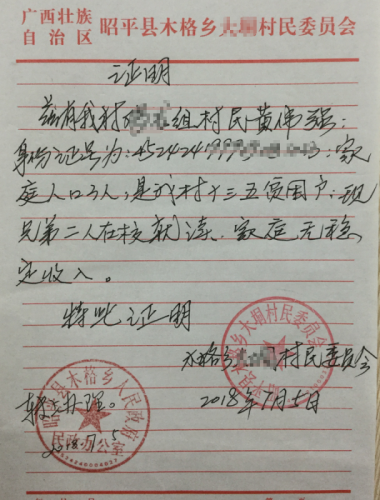 广西壮族
自治区
昭平县木格乡大垌村民委员会
证明
兹有我村 组村民黄伟强:
身份证号为:4524241999 3:家
庭人口3人,是我村十三五贫困户,现
兄弟二人在校就读,家庭无稳
定收入。
特此证明
木格乡 村民委员会
2018年7月5日
转办理。
昭平县木格乡大垌村民委员会
昭平县木格乡人民政府
民政办公室
2018.7.5